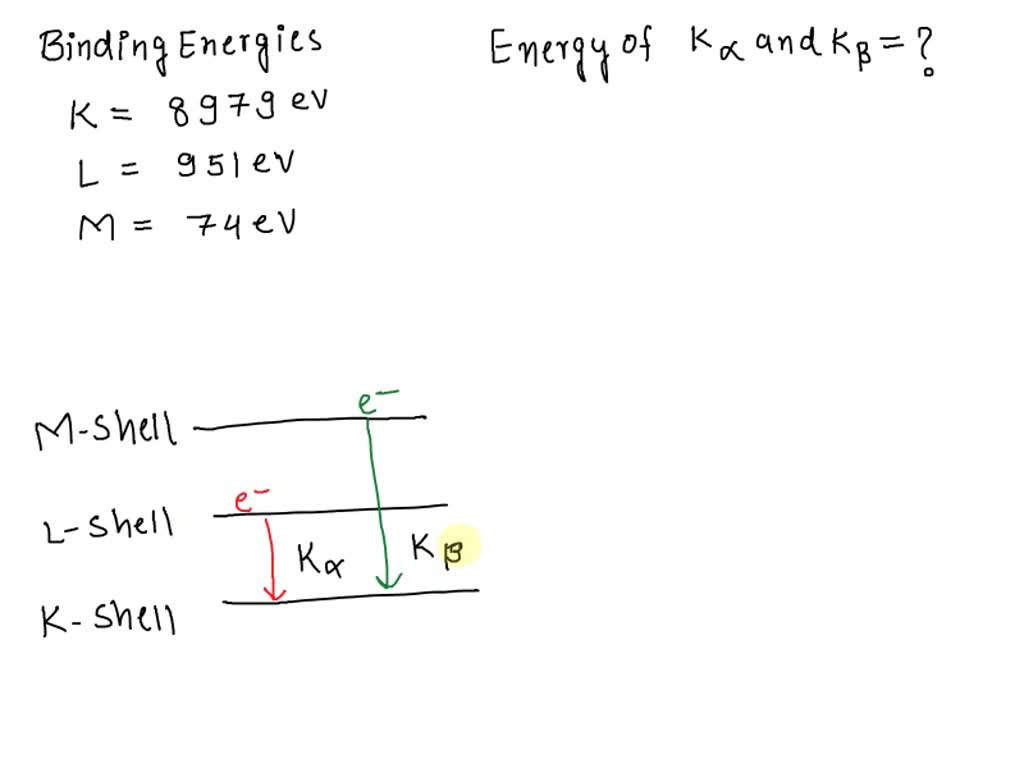 Binding Energies
K = 8979 ev
L = 951 ev
M = 74 eV
Energy of Kα and Kβ = ?
M-Shell
e⁻
L-Shell
e⁻
Kα
Kβ
K-Shell